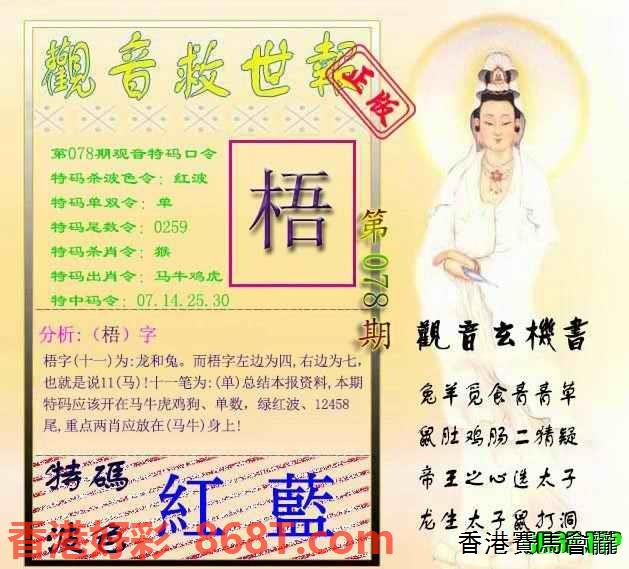 觀音救世報
正版
第078期观音特码口令
特码杀波色令：红波
特码单双令：单
特码尾数令：0259
特码杀肖令：猴
特码出肖令：马牛鸡虎
特中码令：07.14.25.30
梧
第078期
分析:（梧）字
梧字(十一)为:龙和兔。而梧字左边为四,右边为七,
也就是说11(马)!十一笔为:(单)总结本报资料,本期
特码应该开在马牛虎鸡狗、单数，绿红波、12458
尾,重点两肖应放在(马牛)身上!
觀音玄機書
兔羊觅食青青草
鼠肚鸡肠二猜疑
帝王之心选太子
龙生太子鼠打洞
特碼
波色
紅 藍
香港好彩 868T.com
香港賽馬會